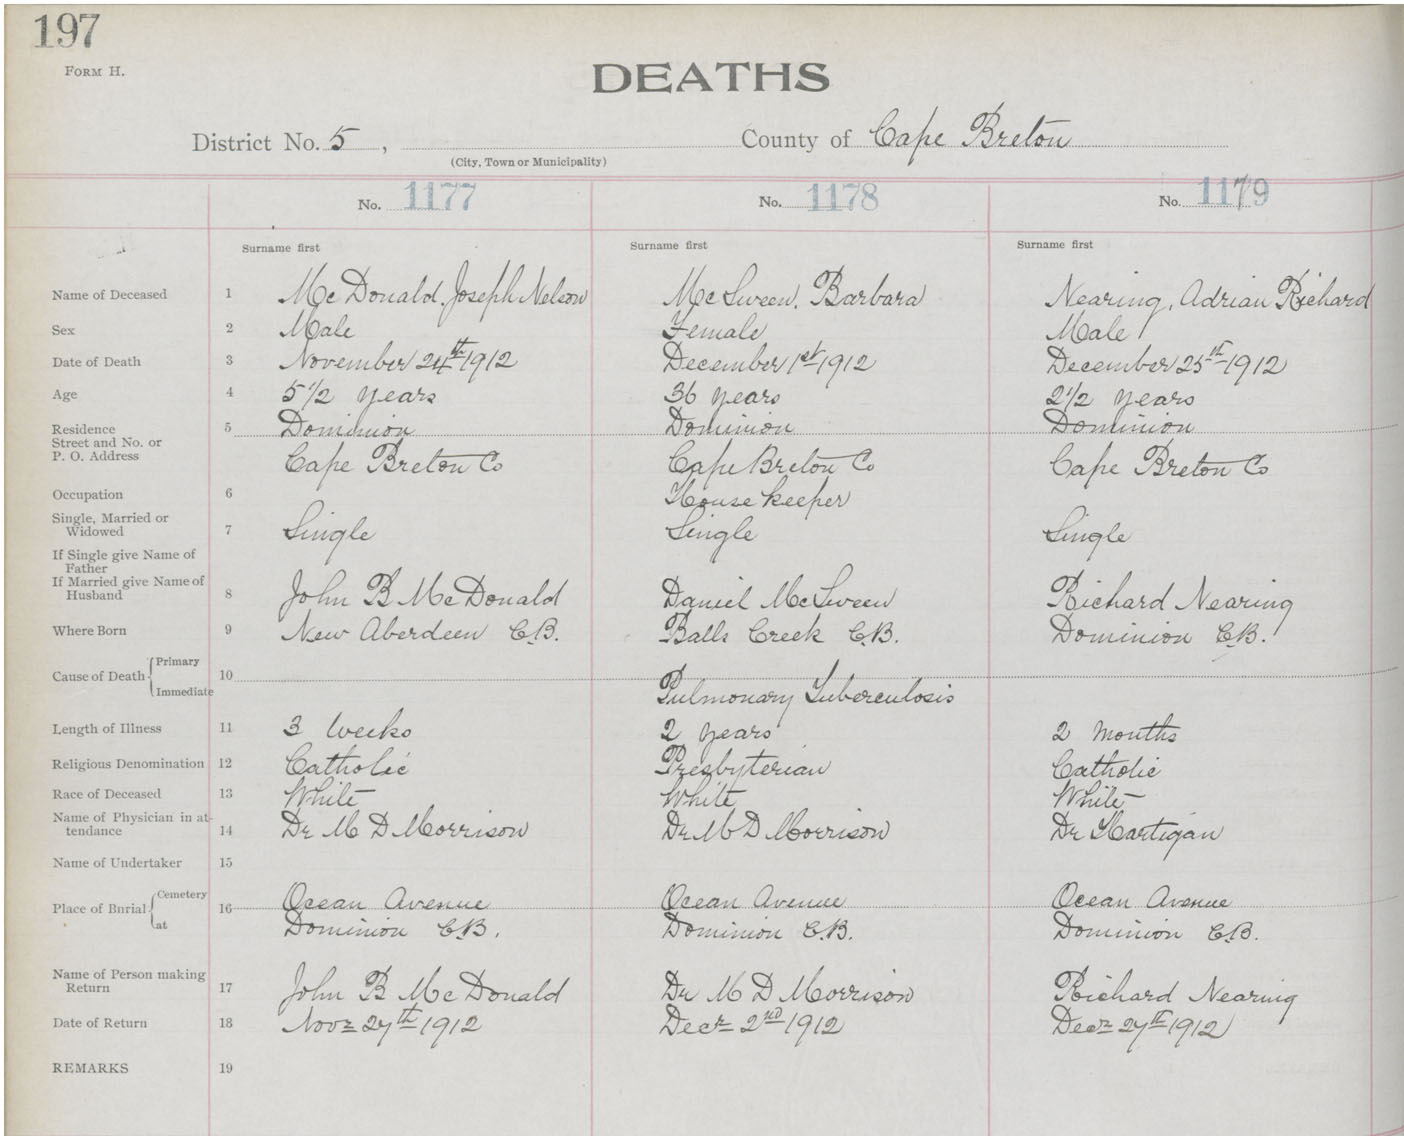 197
FORM H.
DEATHS
District No. 5 , County of Cape Breton
(City, Town or Municipality)
No. 1177 No. 1178 No. 1179
Surname first Surname first Surname first
Name of Deceased 1 McDonald, Joseph Nelson McSween, Barbara Nearing, Adrian Richard
Sex 2 Male Female Male
Date of Death 3 November 24th 1912 December 1st 1912 December 25th 1912
Age 4 5 1/2 years 36 years 2 1/2 years
Residence 5 Dominion Dominion Dominion
Street and No. or
P. O. Address Cape Breton Co Cape Breton Co Cape Breton Co
Occupation 6 House keeper
Single, Married or
Widowed 7 Single Single Single
If Single give Name of
Father
If Married give Name of
Husband 8 John B McDonald Daniel McSween Richard Nearing
Where Born 9 New Aberdeen C.B. Balls Creek C.B. Dominion C.B.
Cause of Death Primary 10
Immediate Pulmonary Tuberculosis
Length of Illness 11 3 Weeks 2 years 2 months
Religious Denomination 12 Catholic Presbyterian Catholic
Race of Deceased 13 White White White
Name of Physician in at-
tendance 14 Dr M D Morrison Dr M D Morrison Dr Hartigan
Name of Undertaker 15
Place of Burial Cemetery 16 Ocean Avenue Ocean Avenue Ocean Avenue
at Dominion C.B. Dominion C.B. Dominion C.B.
Name of Person making
Return 17 John B McDonald Dr M D Morrison Richard Nearing
Date of Return 18 Novr 27th 1912 Decr 2nd 1912 Decr 27th 1912
REMARKS 19